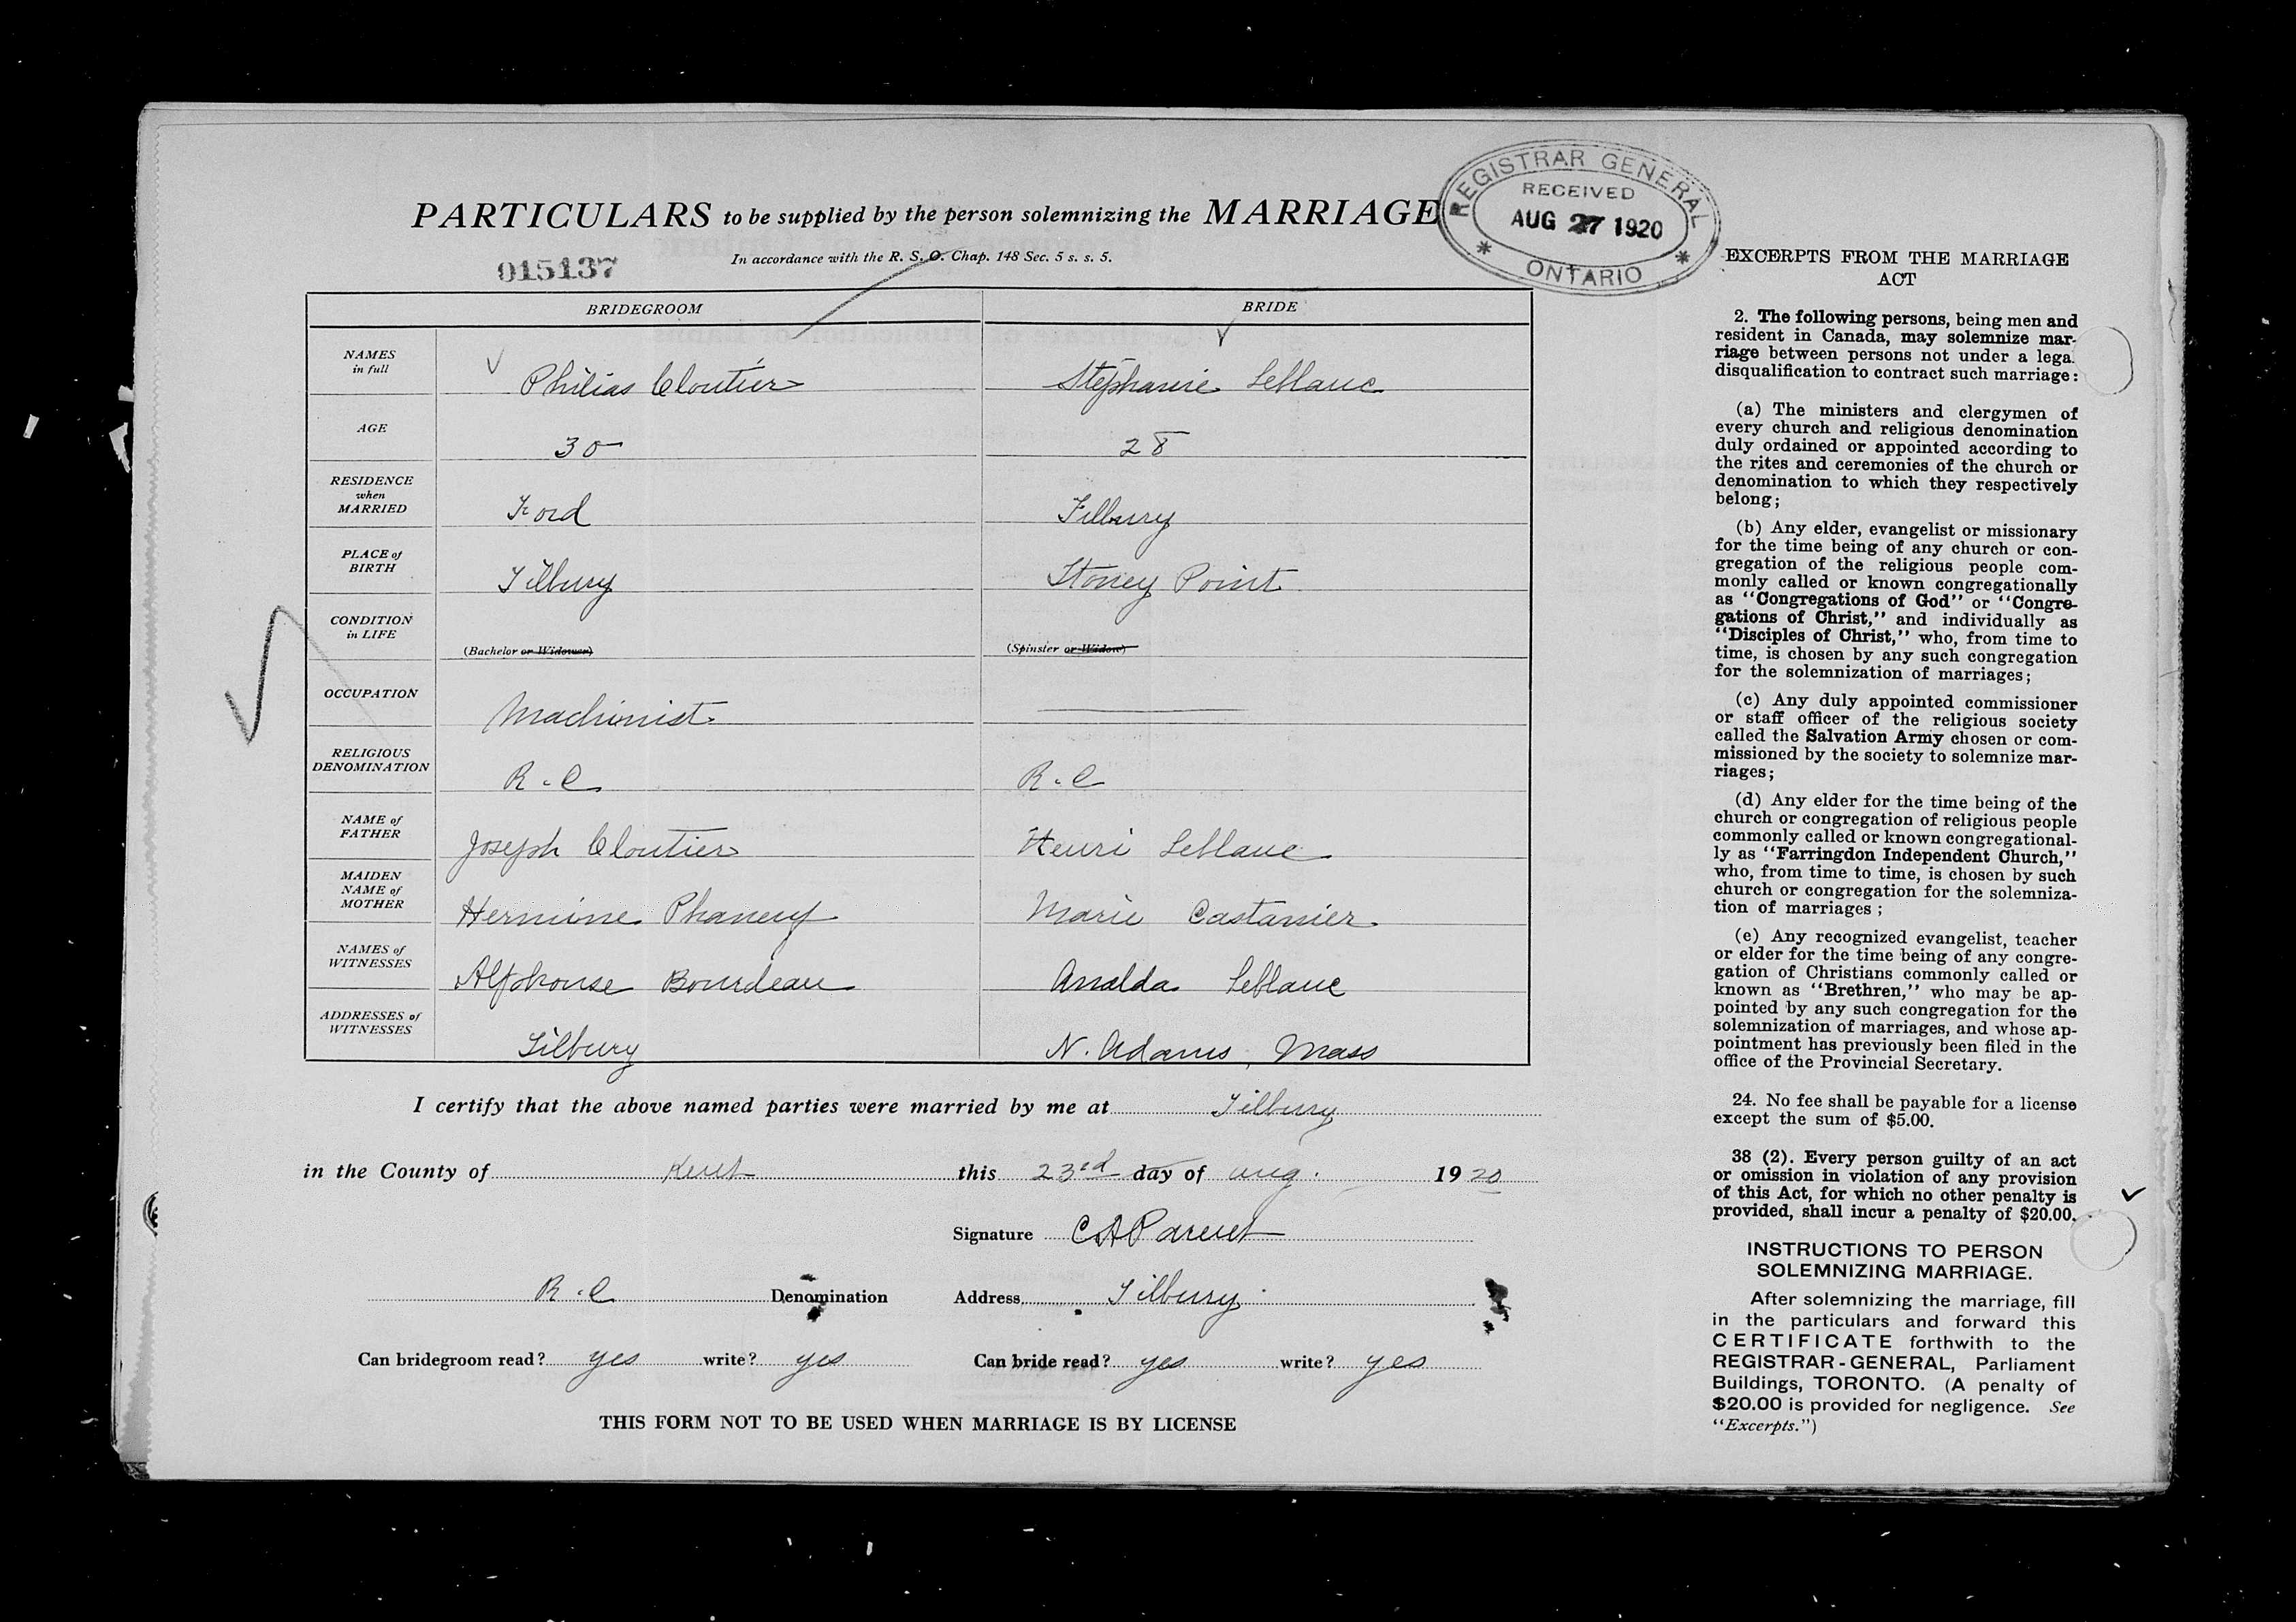 PARTICULARS to be supplied by the person solemnizing the MARRIAGE
In accordance with the R. S. O. Chap. 148 Sec. 5 s. s. 5.
015137
REGISTRAR GENERAL
RECEIVED
AUG 27 1920
* ONTARIO *
BRIDEGROOM BRIDE
NAMES in full Philias Cloutier Stéphanie Leblanc
AGE 30 28
RESIDENCE when MARRIED Ford Tilbury
PLACE of BIRTH Tilbury Stoney Point
CONDITION in LIFE (Bachelor or Widower) (Spinster or Widow)
OCCUPATION Machinist
RELIGIOUS DENOMINATION R.C R.C
NAME of FATHER Joseph Cloutier Henri Leblanc
MAIDEN NAME of MOTHER Hermine Phaneuf Marie Castanier
NAMES of WITNESSES Alphonse Bourdeau Analda Leblanc
ADDRESSES of WITNESSES Tilbury N. Adams, Mass
I certify that the above named parties were married by me at Tilbury
in the County of Kent this 23rd day of Aug. 1920
Signature C A Parent
R.C Denomination Address Tilbury
Can bridegroom read? yes write? yes Can bride read? yes write? yes
THIS FORM NOT TO BE USED WHEN MARRIAGE IS BY LICENSE
EXCERPTS FROM THE MARRIAGE
ACT
2. The following persons, being men and
resident in Canada, may solemnize mar-
riage between persons not under a legal
disqualification to contract such marriage:
(a) The ministers and clergymen of
every church and religious denomination
duly ordained or appointed according to
the rites and ceremonies of the church or
denomination to which they respectively
belong;
(b) Any elder, evangelist or missionary
for the time being of any church or con-
gregation of the religious people com-
monly called or known congregationally
as "Congregations of God" or "Congre-
gations of Christ," and individually as
"Disciples of Christ," who, from time to
time, is chosen by any such congregation
for the solemnization of marriages;
(c) Any duly appointed commissioner
or staff officer of the religious society
called the Salvation Army chosen or com-
missioned by the society to solemnize mar-
riages;
(d) Any elder for the time being of the
church or congregation of religious people
commonly called or known congregational-
ly as "Farringdon Independent Church,"
who, from time to time, is chosen by such
church or congregation for the solemniza-
tion of marriages;
(e) Any recognized evangelist, teacher
or elder for the time being of any congre-
gation of Christians commonly called or
known as "Brethren," who may be ap-
pointed by any such congregation for the
solemnization of marriages, and whose ap-
pointment has previously been filed in the
office of the Provincial Secretary.
24. No fee shall be payable for a license
except the sum of $5.00.
38 (2). Every person guilty of an act
or omission in violation of any provision
of this Act, for which no other penalty is
provided, shall incur a penalty of $20.00.
INSTRUCTIONS TO PERSON
SOLEMNIZING MARRIAGE.
After solemnizing the marriage, fill
in the particulars and forward this
CERTIFICATE forthwith to the
REGISTRAR-GENERAL, Parliament
Buildings, TORONTO. (A penalty of
$20.00 is provided for negligence. See
"Excerpts.")